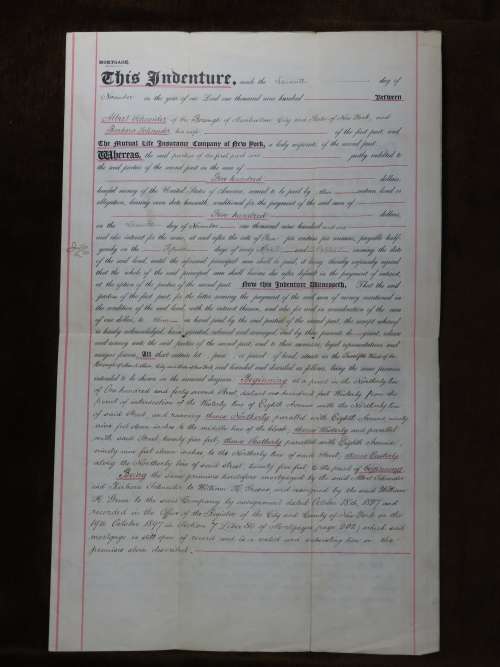 MORTGAGE.
This Indenture, made the Seventh day of
November in the year of our Lord one thousand nine hundred Between
Albert Schneider of the Borough of Manhattan City and State of New York, and
Barbara Schneider his wife of the first part, and
The Mutual Life Insurance Company of New York, a body corporate of the second part.
Whereas, the said parties of the first part are justly indebted to
the said parties of the second part in the sum of
Five hundred dollars,
lawful money of the United States of America, secured to be paid by their certain bond or
obligation, bearing even date herewith conditioned for the payment of the said sum of
Five hundred dollars,
on the Seventh day of November one thousand nine hundred and one
and also interest for the same, at and after the rate of five per centum per annum, payable half-
yearly on the day of each and ensuing the date
of the said bond, until the aforesaid principal sum shall be paid, it being thereby expressly agreed
that the whole of the said principal sum shall become due after default in the payment of interest,
at the option of the parties of the second part. Now this Indenture Witnesseth, That the said
parties of the first part, for the better securing the payment of the said sum of money mentioned in
the condition of the said bond, with the interest thereon, and also for and in consideration of the sum
of one dollar, to them in hand paid by the said parties of the second part, the receipt whereof
is hereby acknowledged, have granted, released and conveyed, and by these presents do grant, release
and convey unto the said parties of the second part, and to their successors, legal representatives and
assigns forever, All that certain lot piece or parcel of land, situate in the Twelfth Ward of the
Borough of Manhattan City and State of New York and bounded and described as follows, being the same premises
intended to be shown in the annexed diagram: Beginning at a point in the Northerly line
of One hundred and forty second Street distant one hundred feet Westerly from the
point of intersection of the Westerly line of Eighth Avenue with the Northerly line
of said Street, and running thence Northerly parallel with Eighth Avenue ninety
nine feet eleven inches to the middle line of the block, thence Westerly and parallel
with said Street twenty five feet, thence Southerly parallel with Eighth Avenue,
ninety nine feet eleven inches to the Northerly line of said Street, thence Easterly
along the Northerly line of said Street twenty five feet to the point of beginning.
Being the same premises heretofore mortgaged by the said Albert Schneider
and Barbara Schneider to William H. and assigned by the said William
H. to the said Company by assignment dated October 18th, 1897 and
recorded in the Office of the Register of the City and County of New York on the
19th October 1897 in Section 7 Liber of Mortgages page 202; which said
mortgage is still open of record and is a valid and subsisting lien on the
premises above described.